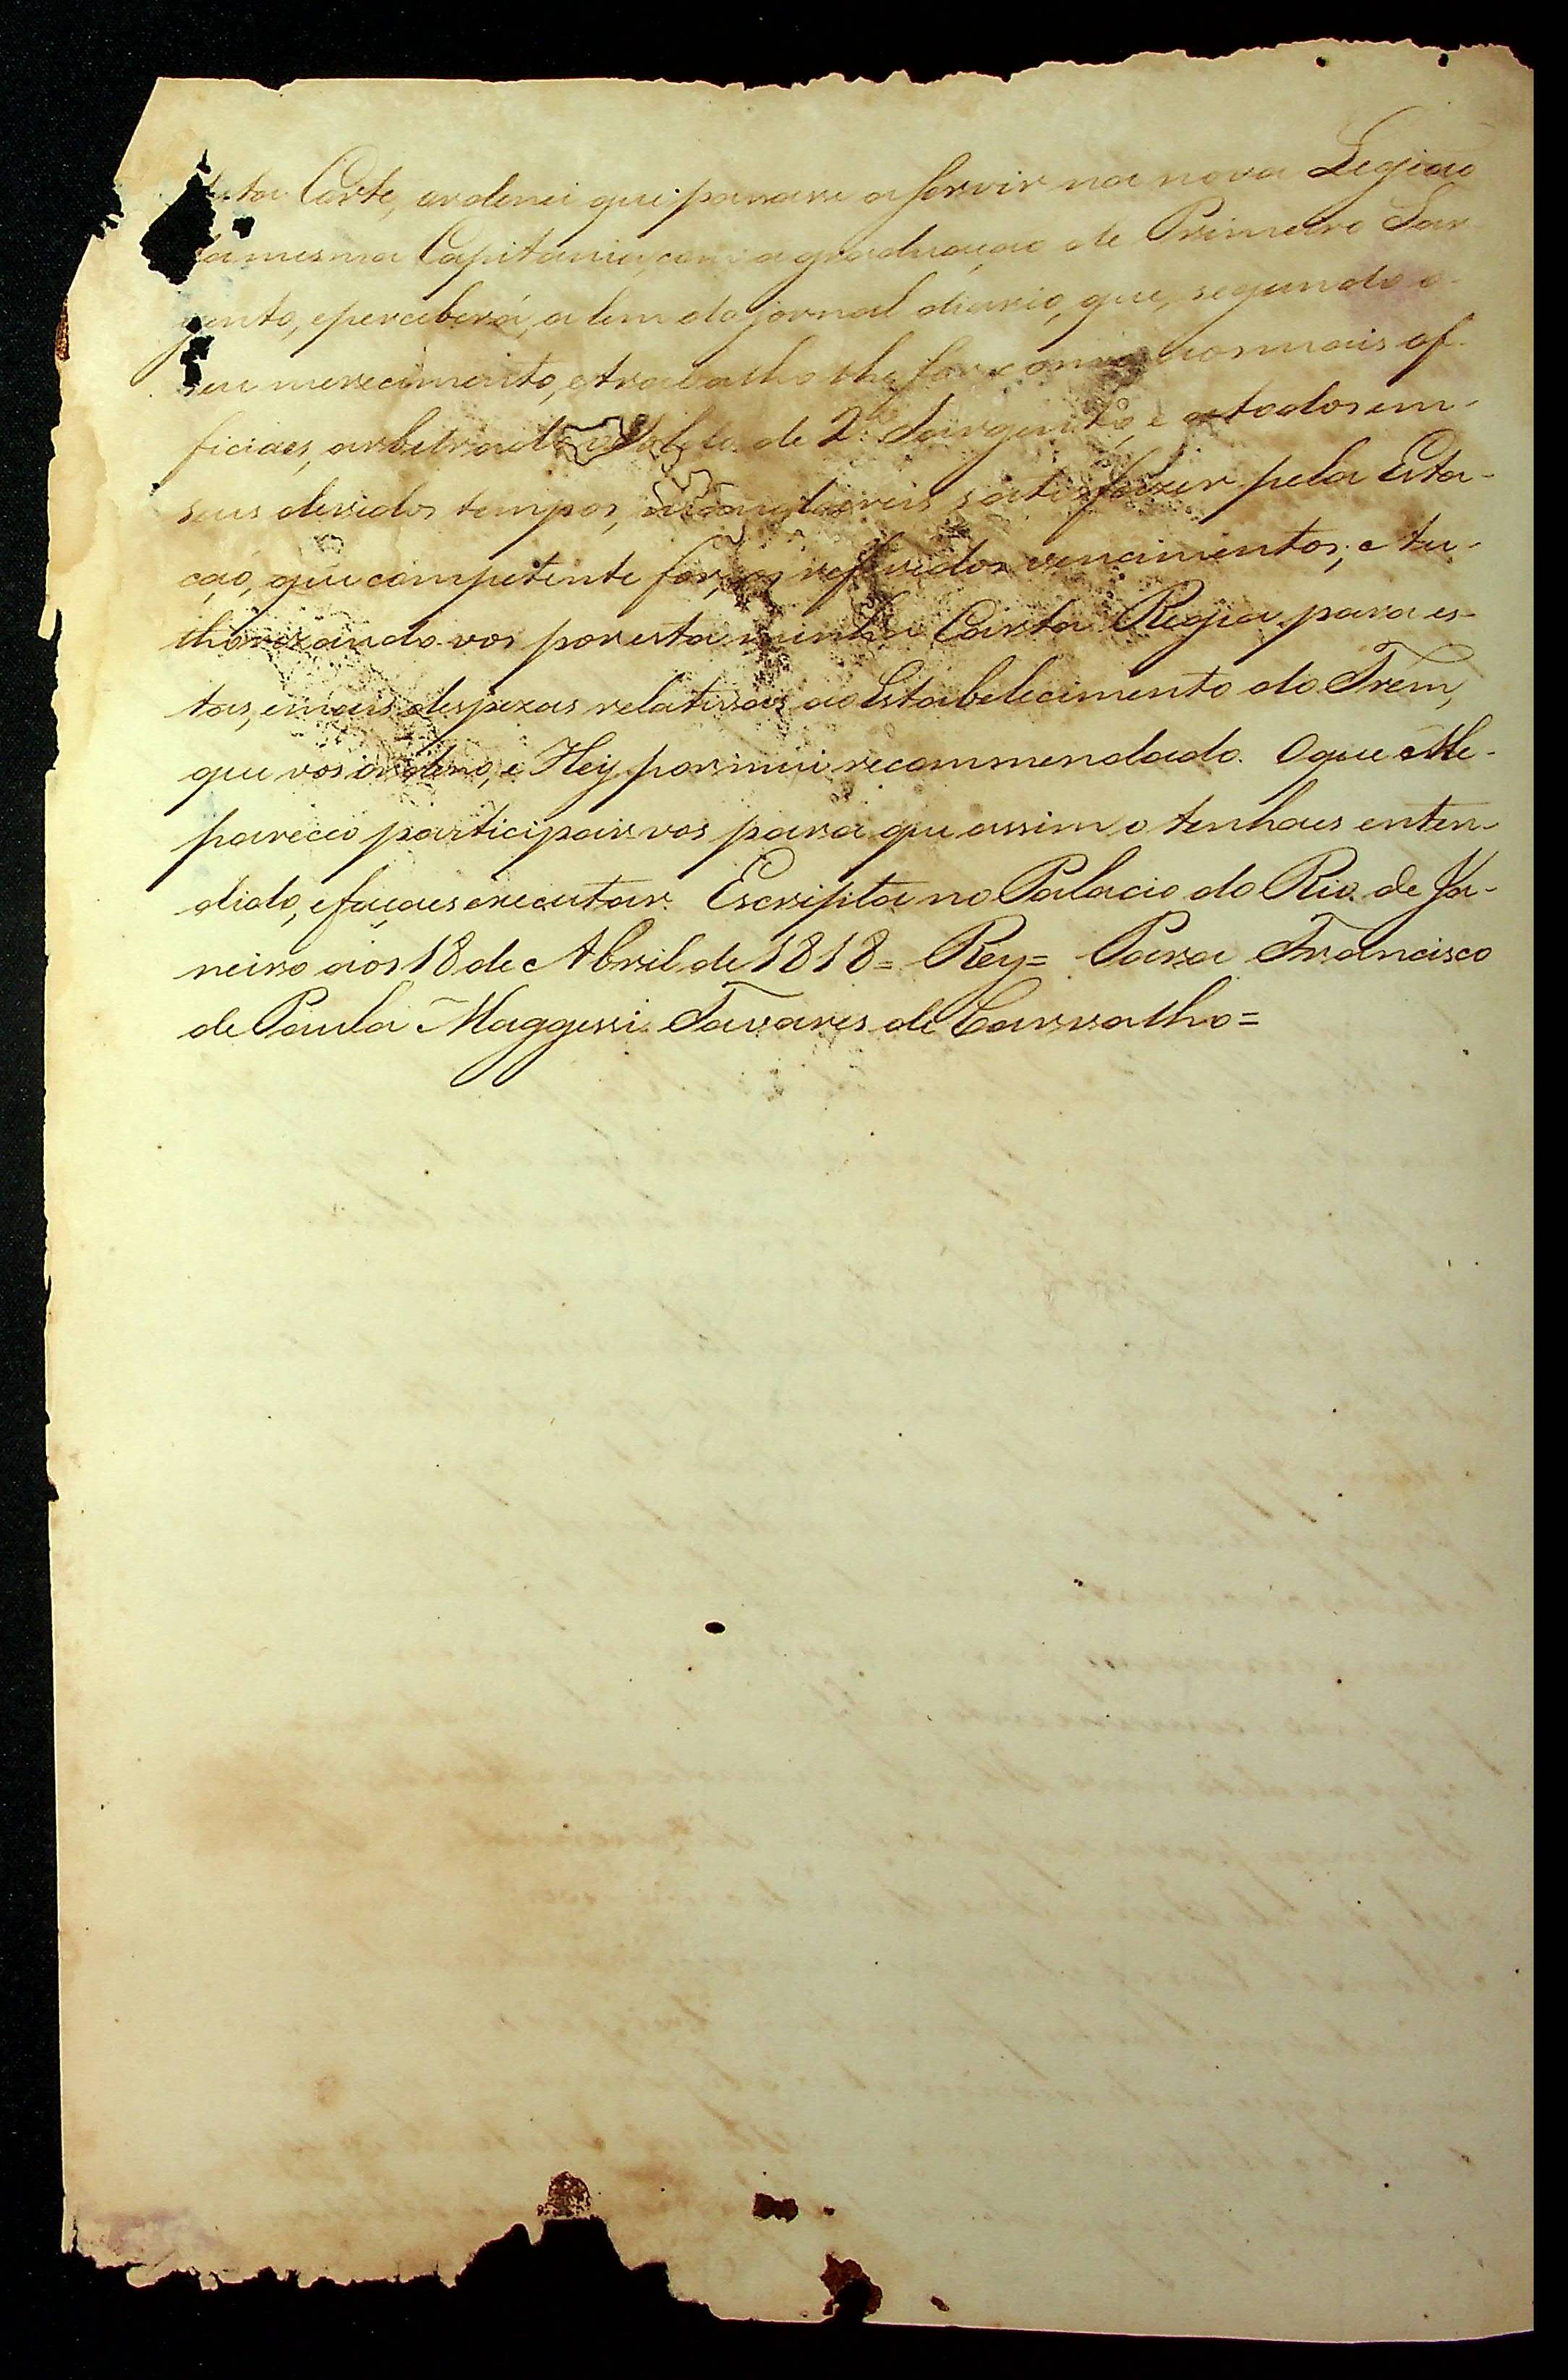 desta Corte, ordenei que passase a servir na nova Legiaõ
da mesma Capitania, com a graduaçaõ de Primeiro Sar-
gento, e perceberá, alem do jornal diario, que, segundo o
seu merecimento, e trabalho lhe for, como nos mais of-
ficiaes, arbetrado de 2º Sargento, e a todos em
seus devidos tempos, satisfazer pela Esta-
çaõ, que competente for, os referidos vencimentos; e tu-
thorizando-vos por esta minha Carta Regia para es-
tas, e mais despezas relativas ao Estabelecimento do Trem,
que vos ordeno, e Hey por mui recommendado. O que Me
pareceo participar-vos para que assim o tenhaes enten-
dido, e façaes executar. Escripta no Palacio do Rio de Ja-
neiro aos 18 de Abril de 1818= Rey= Para Francisco
de Paula Maggessi Tavares de Carvalho=